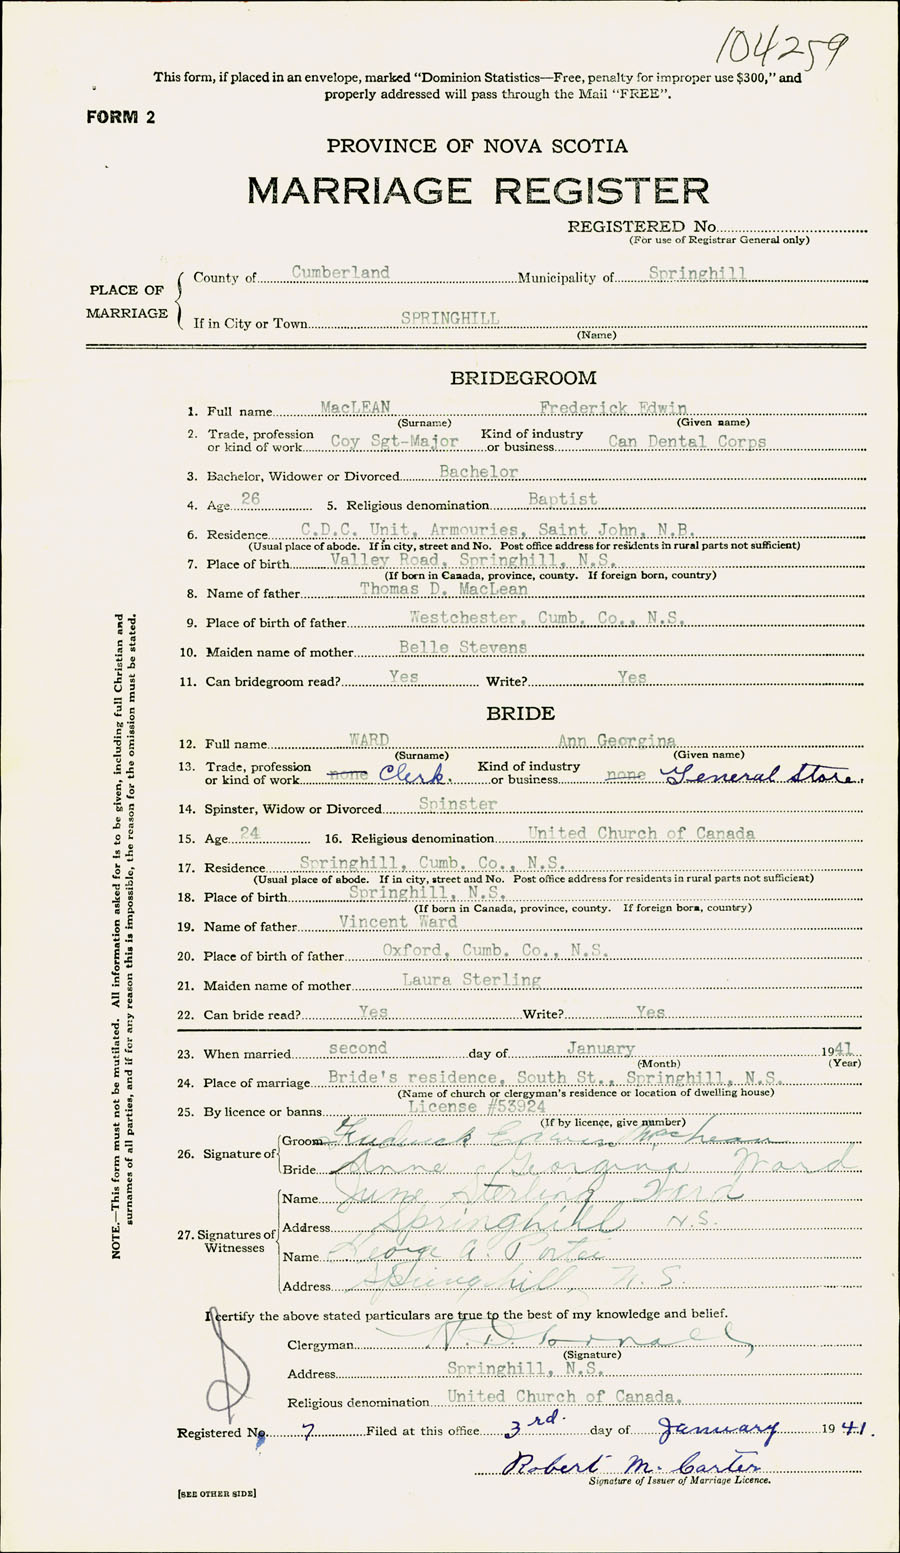 104259
This form, if placed in an envelope, marked "Dominion Statistics—Free, penalty for improper use $300," and
properly addressed will pass through the Mail "FREE".
FORM 2
PROVINCE OF NOVA SCOTIA
MARRIAGE REGISTER
REGISTERED No
(For use of Registrar General only)
PLACE OF MARRIAGE
County of Cumberland Municipality of Springhill
If in City or Town SPRINGHILL
(Name)
BRIDEGROOM
1. Full name MacLEAN Frederick Edwin
(Surname) (Given name)
2. Trade, profession or kind of work Coy Sgt-Major Kind of industry or business Can Dental Corps
3. Bachelor, Widower or Divorced Bachelor
4. Age 26 5. Religious denomination Baptist
6. Residence C.D.C. Unit, Armouries, Saint John, N.B.
(Usual place of abode. If in city, street and No. Post office address for residents in rural parts not sufficient)
7. Place of birth Valley Road, Springhill, N.S.
(If born in Canada, province, county. If foreign born, country)
8. Name of father Thomas D. MacLean
9. Place of birth of father Westchester, Cumb. Co., N.S.
10. Maiden name of mother Belle Stevens
11. Can bridegroom read? Yes Write? Yes
BRIDE
12. Full name WARD Ann Georgina
(Surname) (Given name)
13. Trade, profession or kind of work none Clerk. Kind of industry or business none General Store.
14. Spinster, Widow or Divorced Spinster
15. Age 24 16. Religious denomination United Church of Canada
17. Residence Springhill, Cumb. Co., N.S.
(Usual place of abode. If in city, street and No. Post office address for residents in rural parts not sufficient)
18. Place of birth Springhill, N.S.
(If born in Canada, province, county. If foreign born, country)
19. Name of father Vincent Ward
20. Place of birth of father Oxford, Cumb. Co., N.S.
21. Maiden name of mother Laura Sterling
22. Can bride read? Yes Write? Yes
23. When married second day of January 1941
(Month) (Year)
24. Place of marriage Bride's residence, South St., Springhill, N.S.
(Name of church or clergyman's residence or location of dwelling house)
25. By licence or banns License #53924
(If by licence, give number)
26. Signature of Groom Frederick Edwin MacLean
Bride Anne Georgina Ward
27. Signatures of Witnesses Name June Sterling Ward
Address Springhill N.S.
Name George A. Porter
Address Springhill, N.S.
I certify the above stated particulars are true to the best of my knowledge and belief.
Clergyman
(Signature)
Address Springhill, N.S.
Religious denomination United Church of Canada.
Registered No. 7 Filed at this office 3rd. day of January 1941.
Robert M. Carter
Signature of Issuer of Marriage Licence.
[SEE OTHER SIDE]
NOTE.—This form must not be mutilated. All information asked for is to be given, including full Christian and
surnames of all parties, and if for any reason this is impossible, the reason for the omission must be stated.